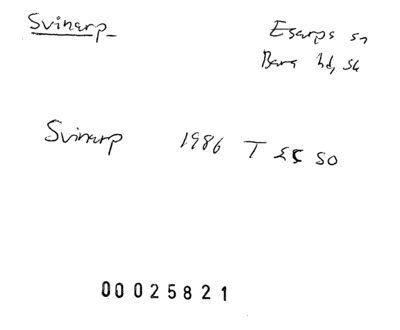 Svinarp
Esarps sn
Bara hd, Sk
Svinarp 1986 T EK SO
00025821